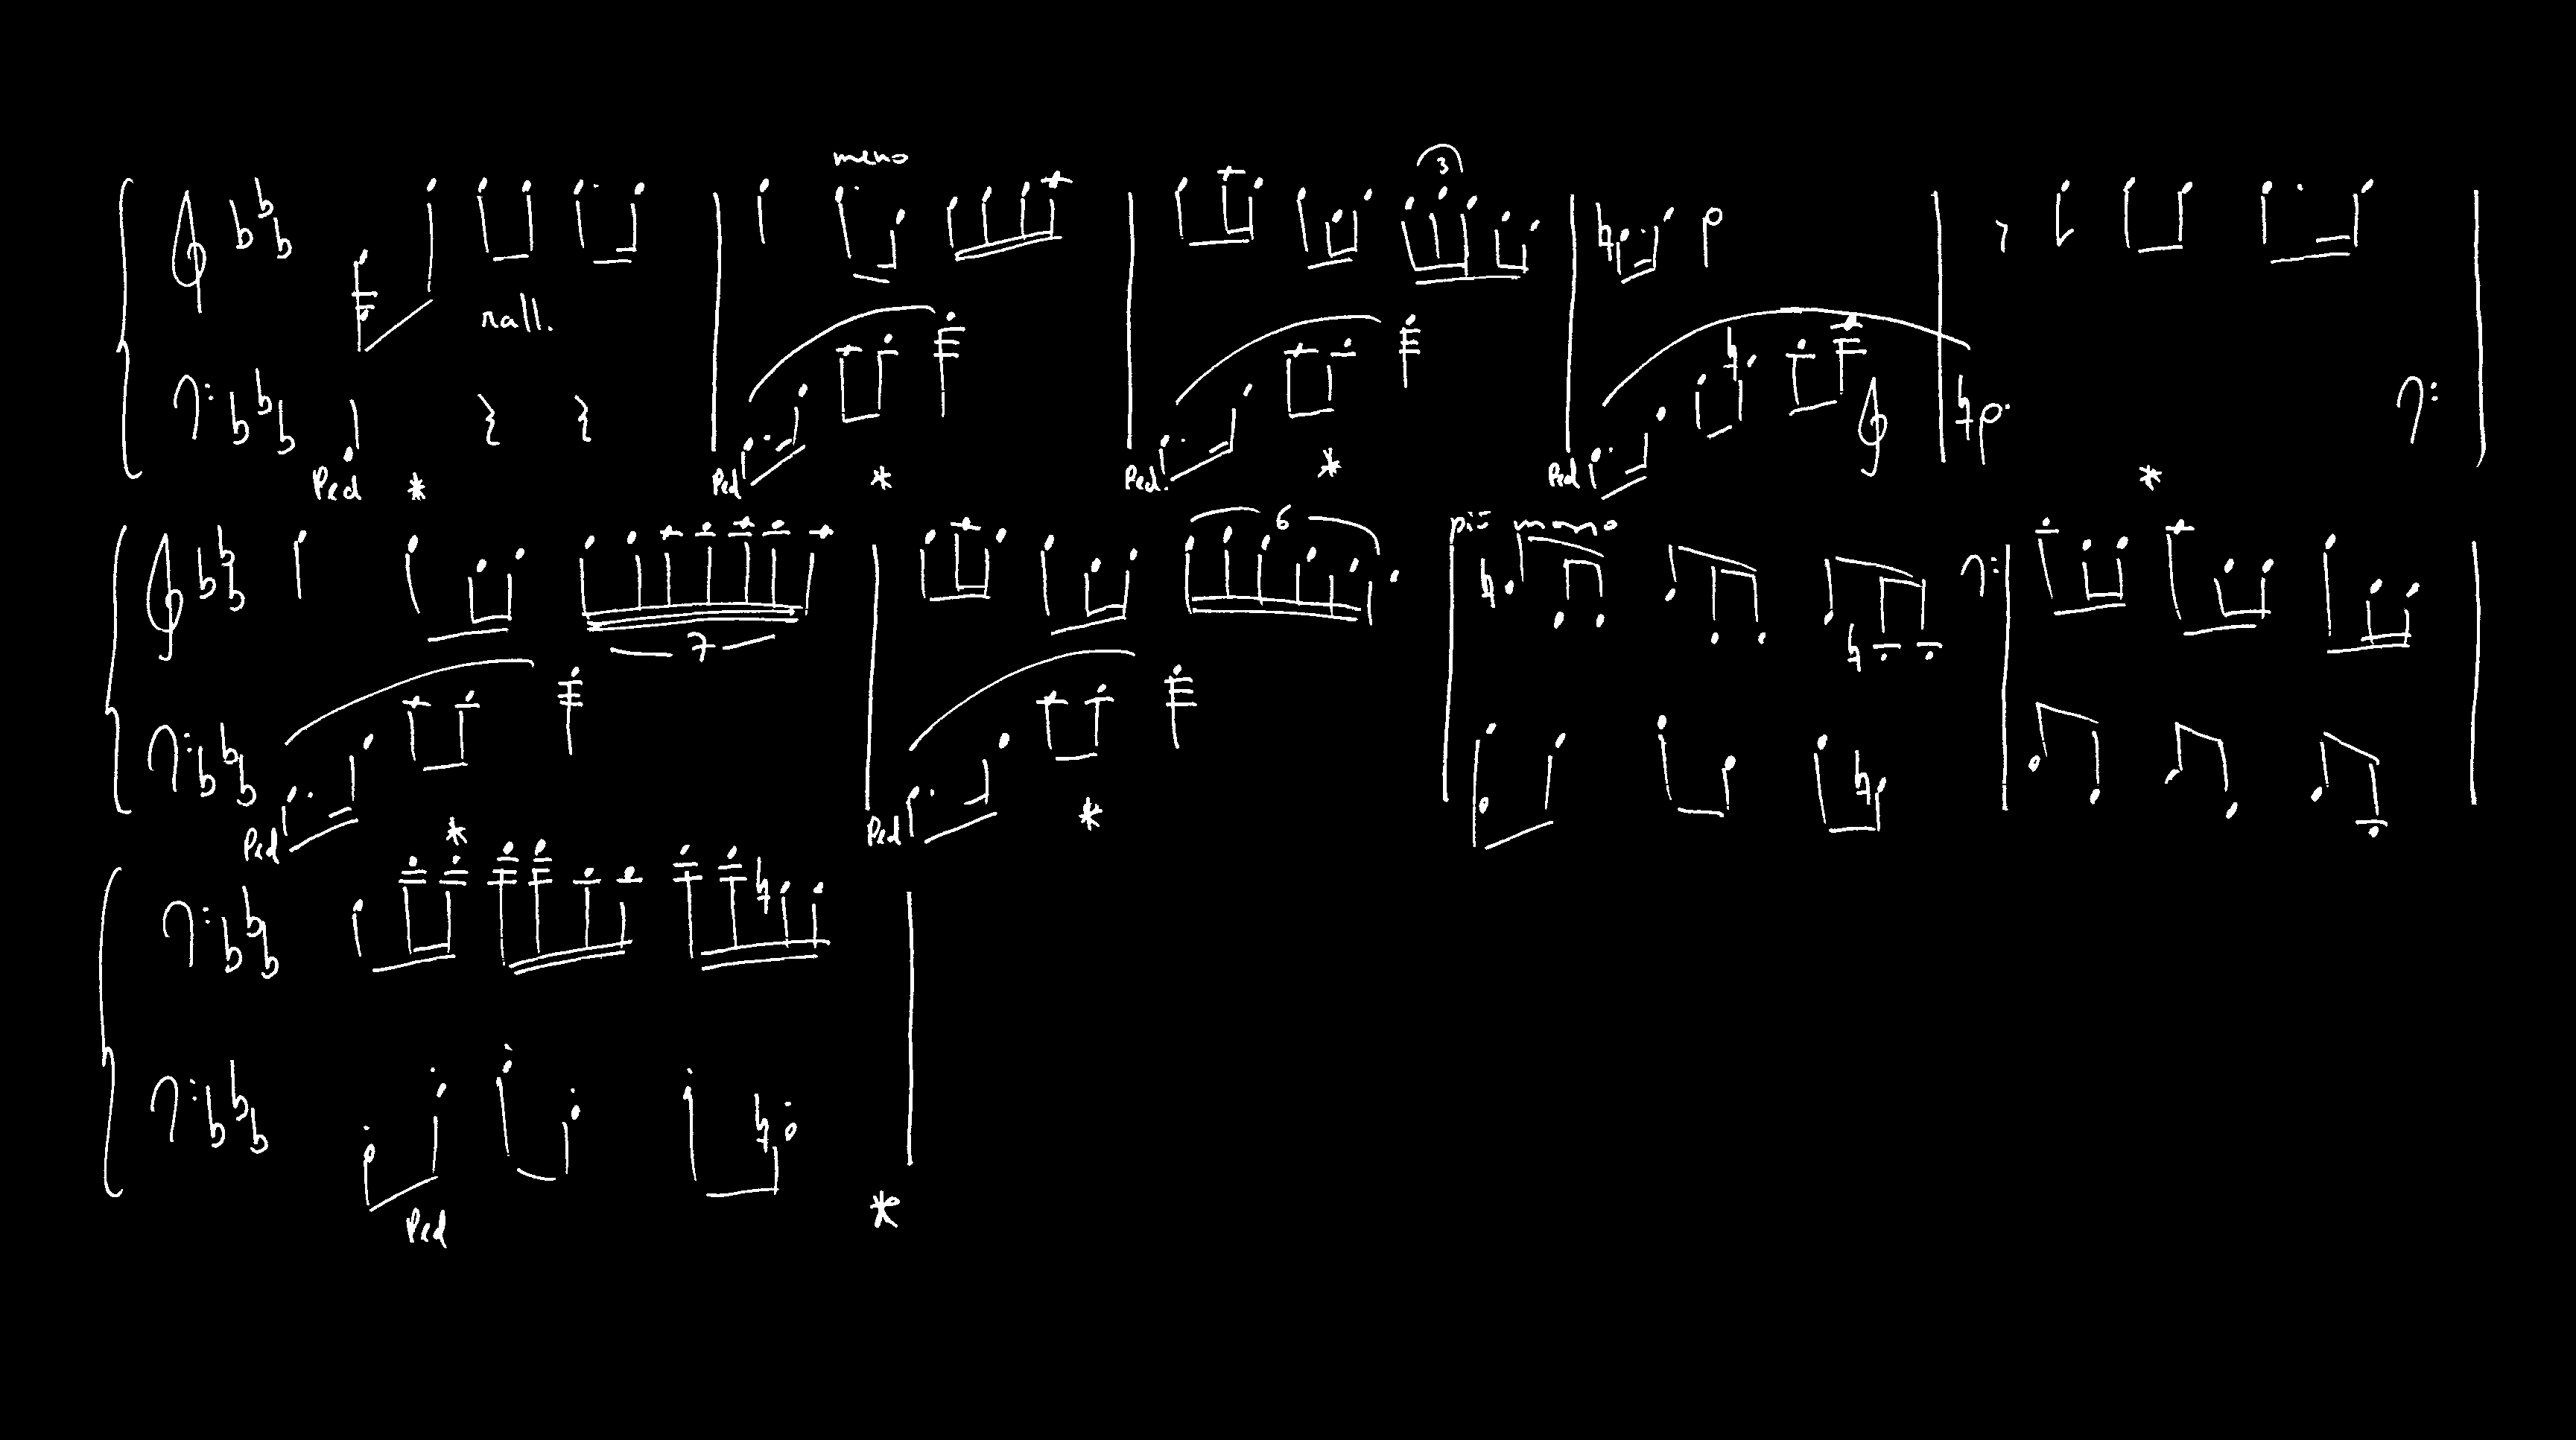 meno
3
rall.
Ped * Ped * Ped. * Ped *
6
più meno
7
Ped * Ped *
Ped *